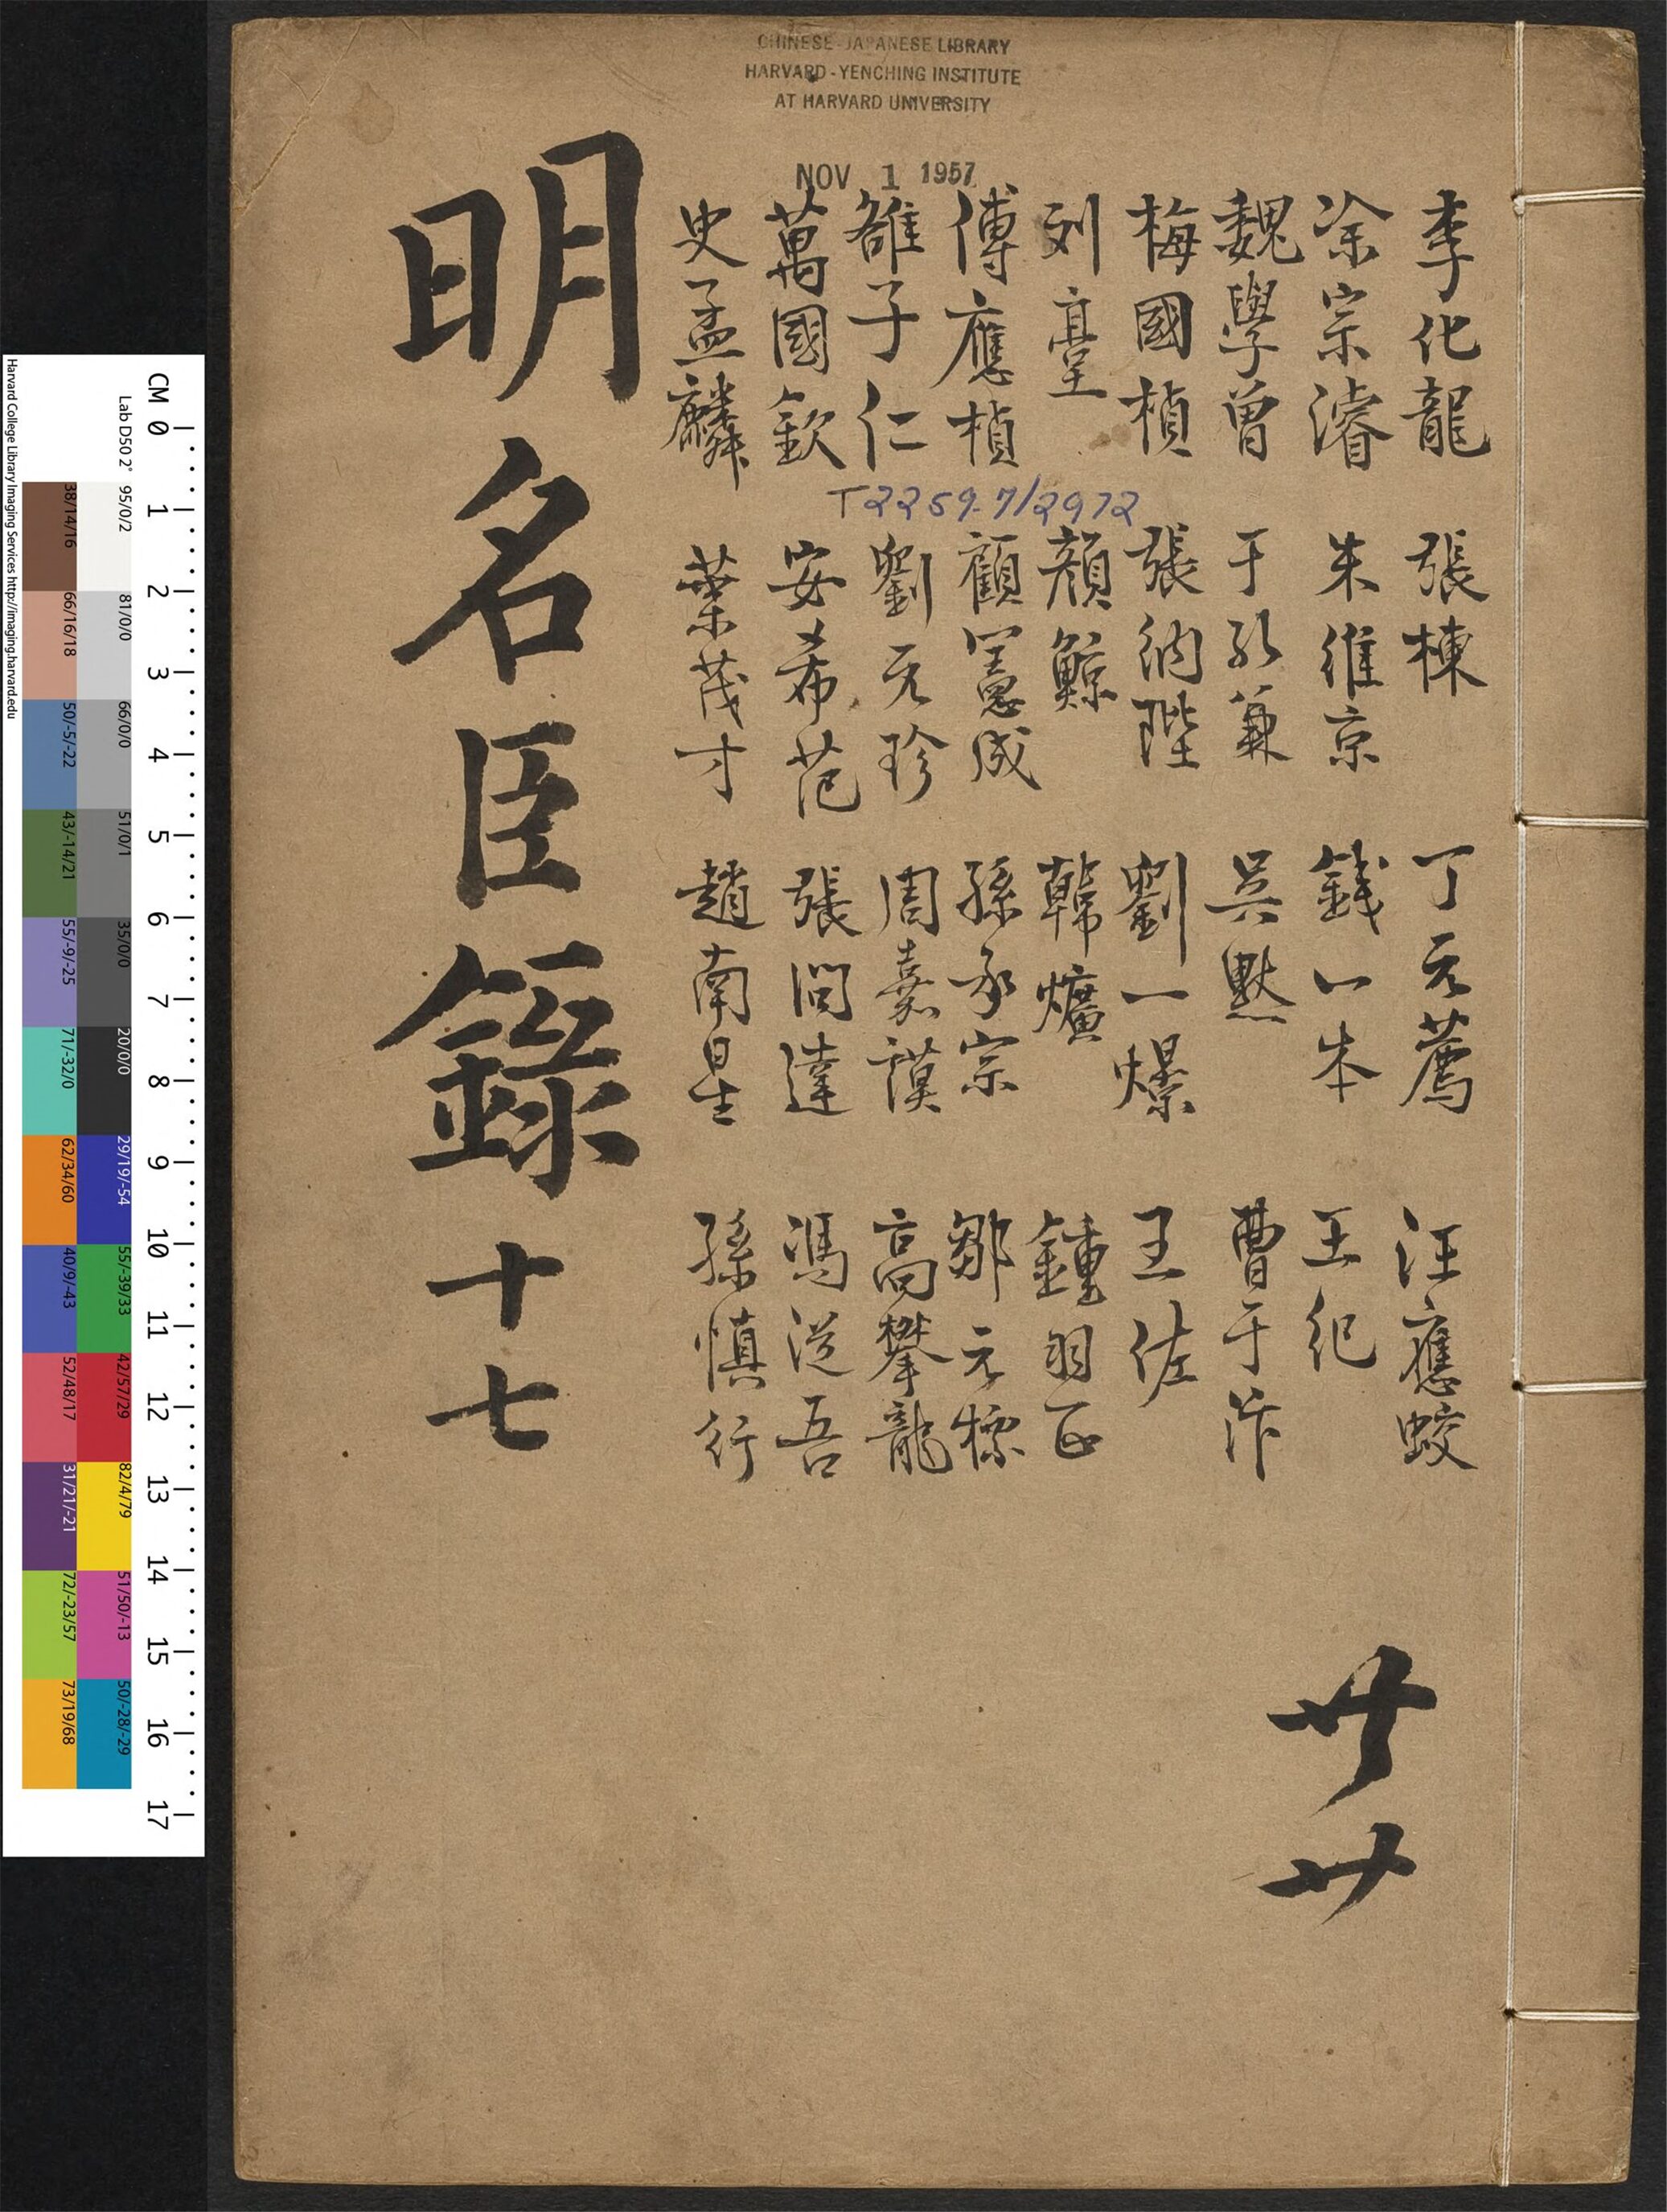 CHINESE-JAPANESE LIBRARY
HARVARD-YENCHING INSTITUTE
AT HARVARD UNIVERSITY
NOV 1 1957
T2259.7/2972
李化龍 張棟 丁元薦 汪應蛟
涂宗濬 朱維京 錢一本 王紀
魏學曾 于孔兼 吳默 曹于汴
梅國楨 張納陛 劉一燝 王佐
刘臺 顏鯨 韓爌 鍾羽正
傅應楨 顧憲成 孫承宗 鄒元標
雒子仁 劉元珍 周嘉謨 高攀龍
萬國欽 安希范 張問達 馮從吾
史孟麟 葉茂才 趙南星 孫慎行
明名臣錄十七
廿
廿
CM 0 1 2 3 4 5 6 7 8 9 10 11 12 13 14 15 16 17
Lab D50 2° 95/0/2 81/0/0 66/0/0 51/0/1 35/0/0 20/0/0 29/19/-54 55/-39/33 42/57/29 82/4/79 51/50/-13 50/-28/-29
38/14/16 66/16/18 50/-5/-22 43/-14/21 55/-9/-25 71/-32/0 62/34/60 40/9/-43 52/48/17 31/21/-21 72/-23/57 73/19/68
Harvard College Library Imaging Services http://imaging.harvard.edu